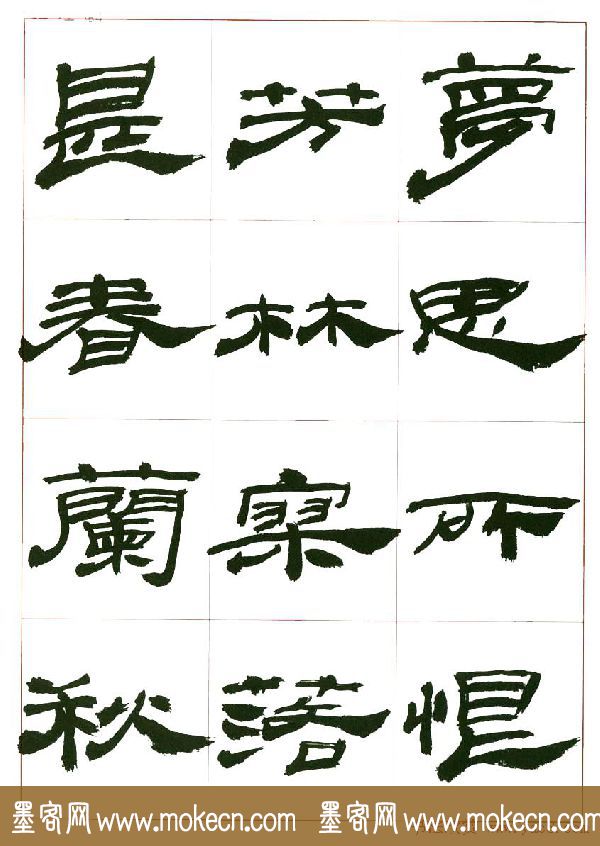 夢思所恨
芳林落
是春蘭秋
墨客网 www.mokecn.com 墨客网 www.mokecn.com